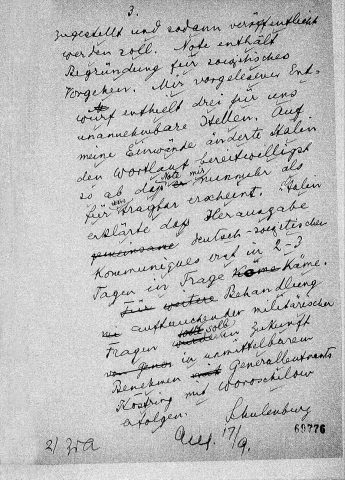 3.
zugestellt und sodann veröffentlicht
werden soll. Note enthält
Begründung für sowjetisches
Vorgehen. Mir vorgelesener Ent-
wurf enthielt drei für uns
unannehmbare Stellen. Auf
meine Einwände änderte Stalin
den Wortlaut bereitwilligst
so ab daß Note mir nunmehr als
für uns tragbar erscheint. Stalin
erklärte daß Herausgabe
gemeinsame deutsch-sowjetischen
Kommuniqués erst in 2-3
Tagen in Frage käme Käme.
Für weitere Behandlung
auftauchender militärischer
Fragen soll in Zukunft
in unmittelbarem
Benehmen Generalleutnants
Köstring mit Woroschilow
erfolgen. Schulenburg
17/9.
69776